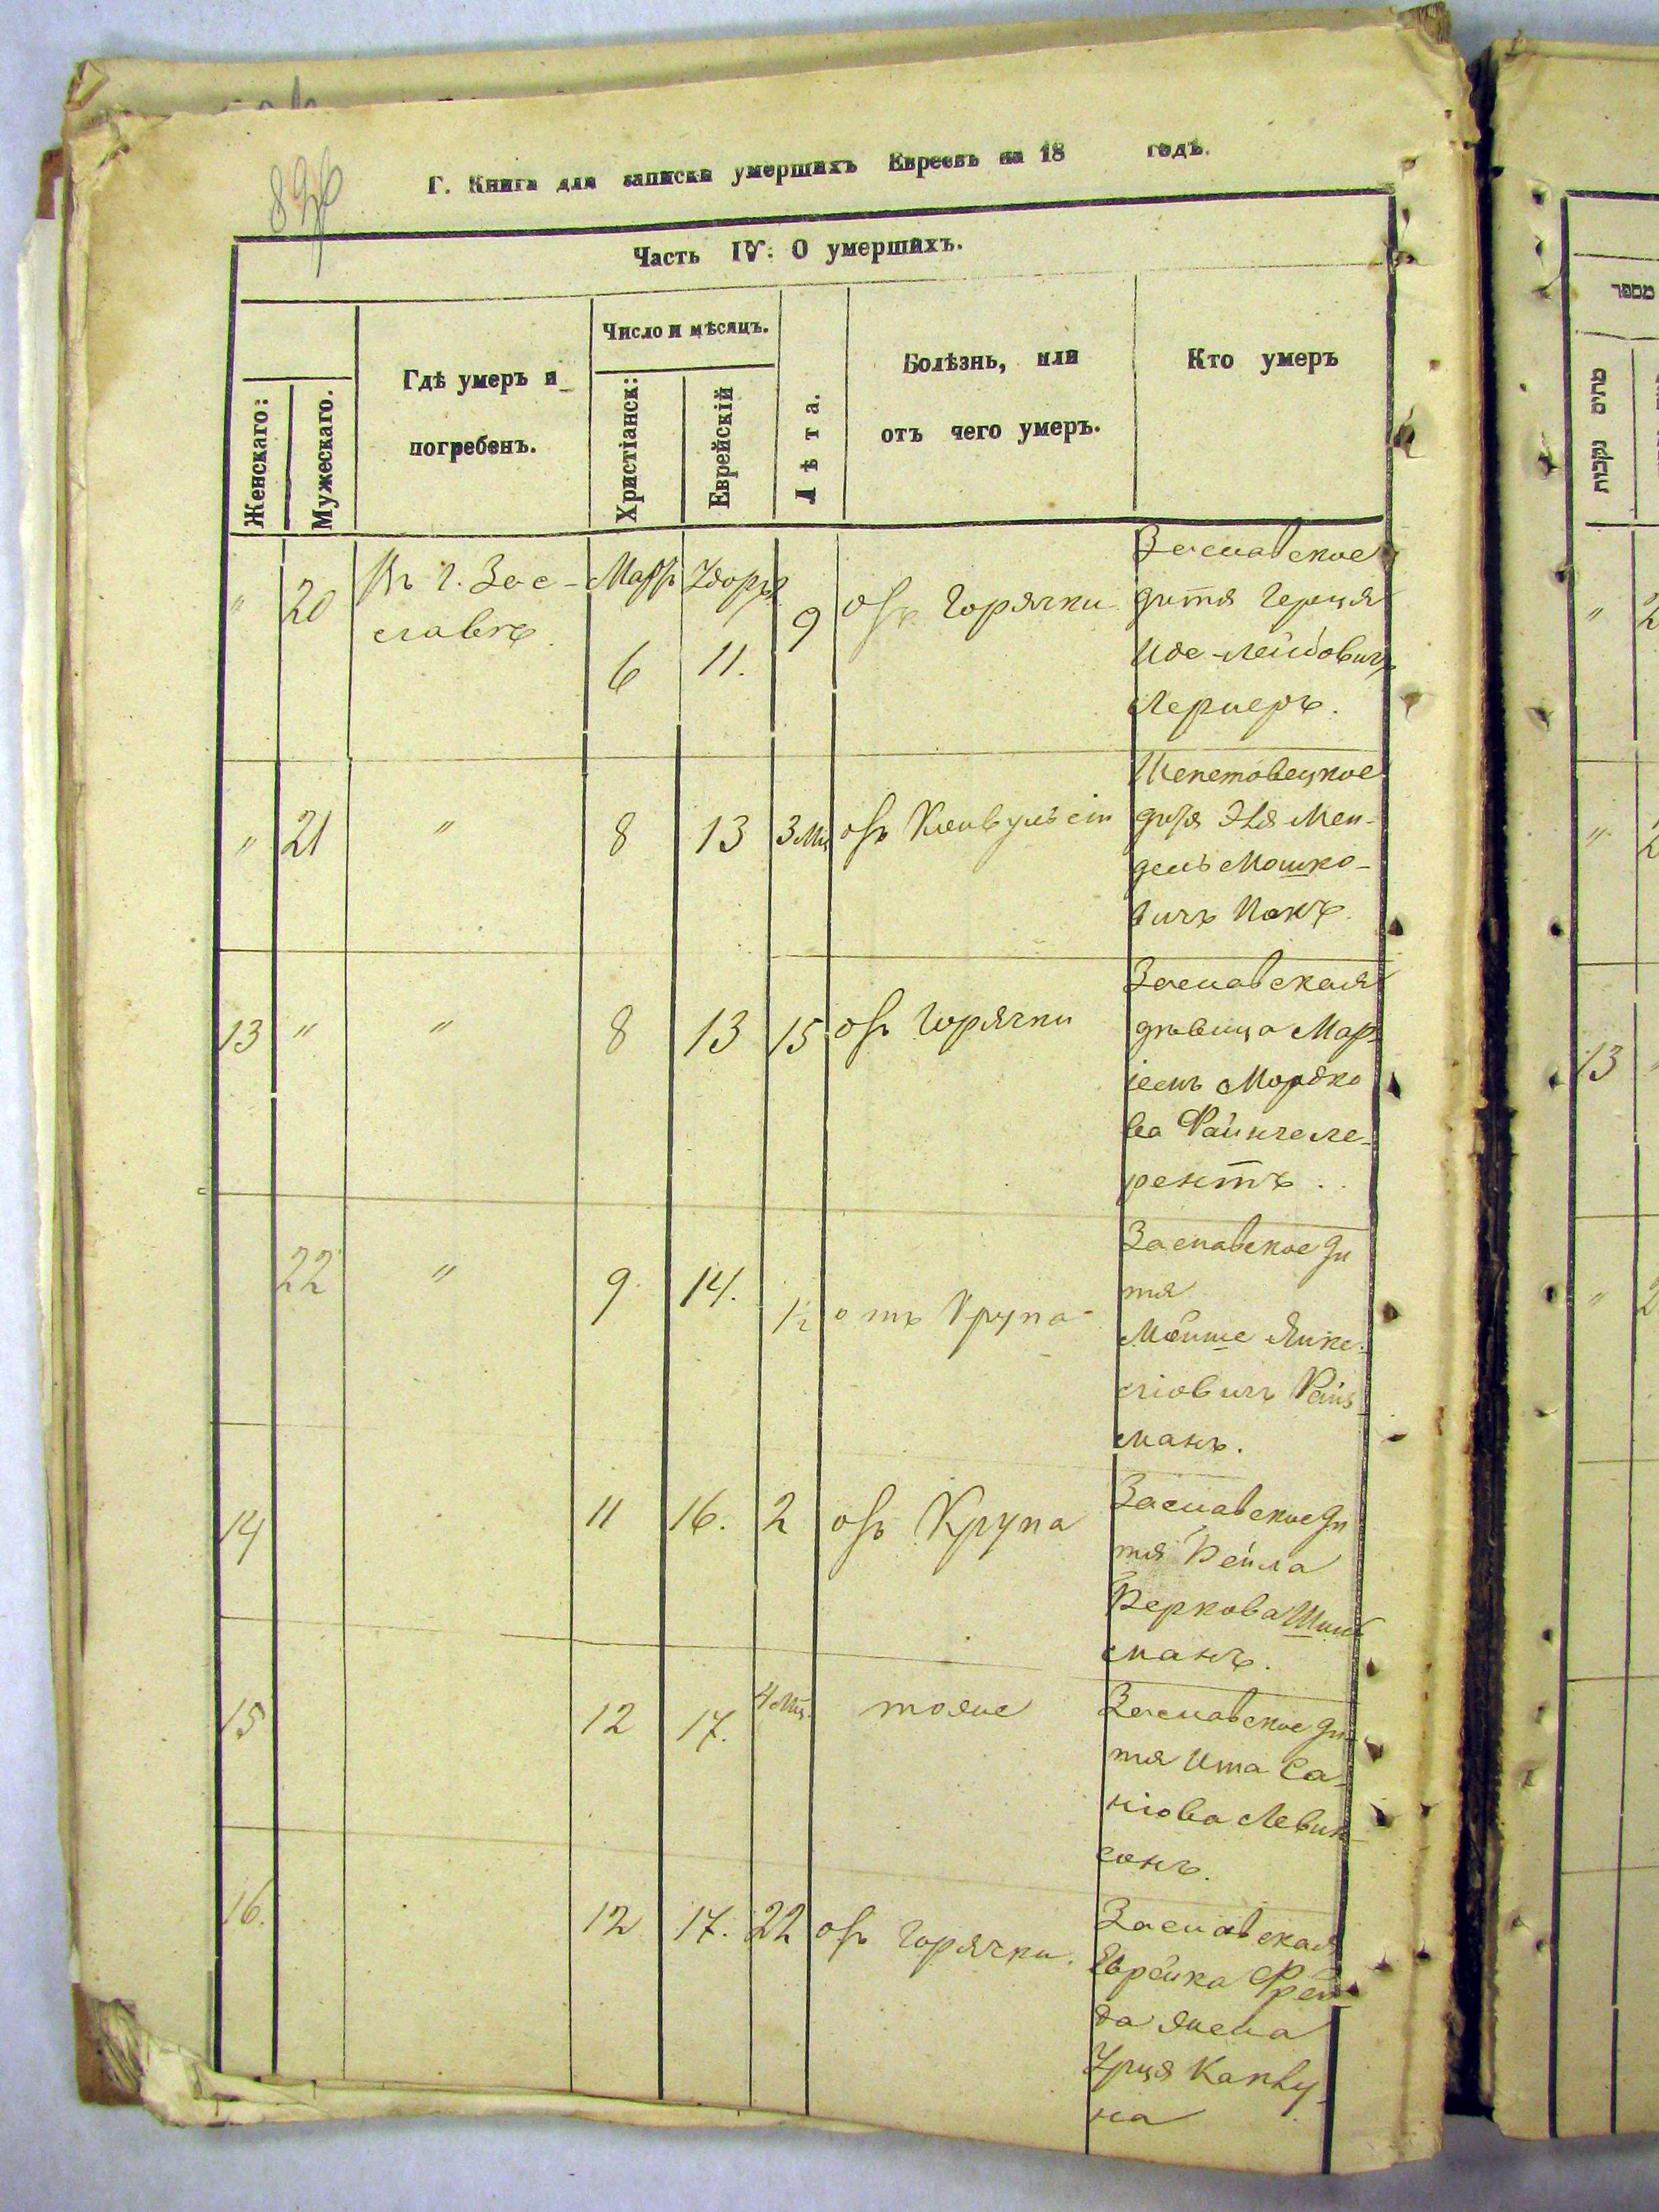 Г. Книга для записки умершихъ Евреевъ на 18 годъ.
Часть IV: О умершихъ.
Женскаго:
Мужескаго.
Гдѣ умеръ и
погребенъ.
Число и мѣсяцъ.
Христіанск:
Еврейскій
Лѣта.
Болѣзнь, или
отъ чего умеръ.
Кто умеръ
" 20 Въ г. Зас-
славлѣ
Мартъ
6 11. 9 отъ Горячки
Заславское
дитя Герцъ
Лейбовичъ
Лернеръ.
" 21 " 8 13 3 Мц отъ Конвульсіи
Шепетовецкое
дитя Эля Мен-
дель Мошко-
вичъ
13 " " 8 13 15 отъ Горячки
Заславская
дѣвица Мар
іемъ Мордко
ва
рентъ..
22 " 9. 14. 1½ отъ Крупа
Заславское ди
тя
Мойше Янке-
ліовичъ Райз
манъ.
14 11 16. 2 отъ Крупа
Заславское ди
тя Бейла
Беркова
манъ.
15 12 17. 4 Мц. тоже
Заславское ди-
тя Ита
Левин
сонъ.
16. 12 17. 22 отъ Горячки.
Заславская
Еврейка Фрей
да жена
на
מספר
מתים נקבות
" 2
" 2
13 "
" 2